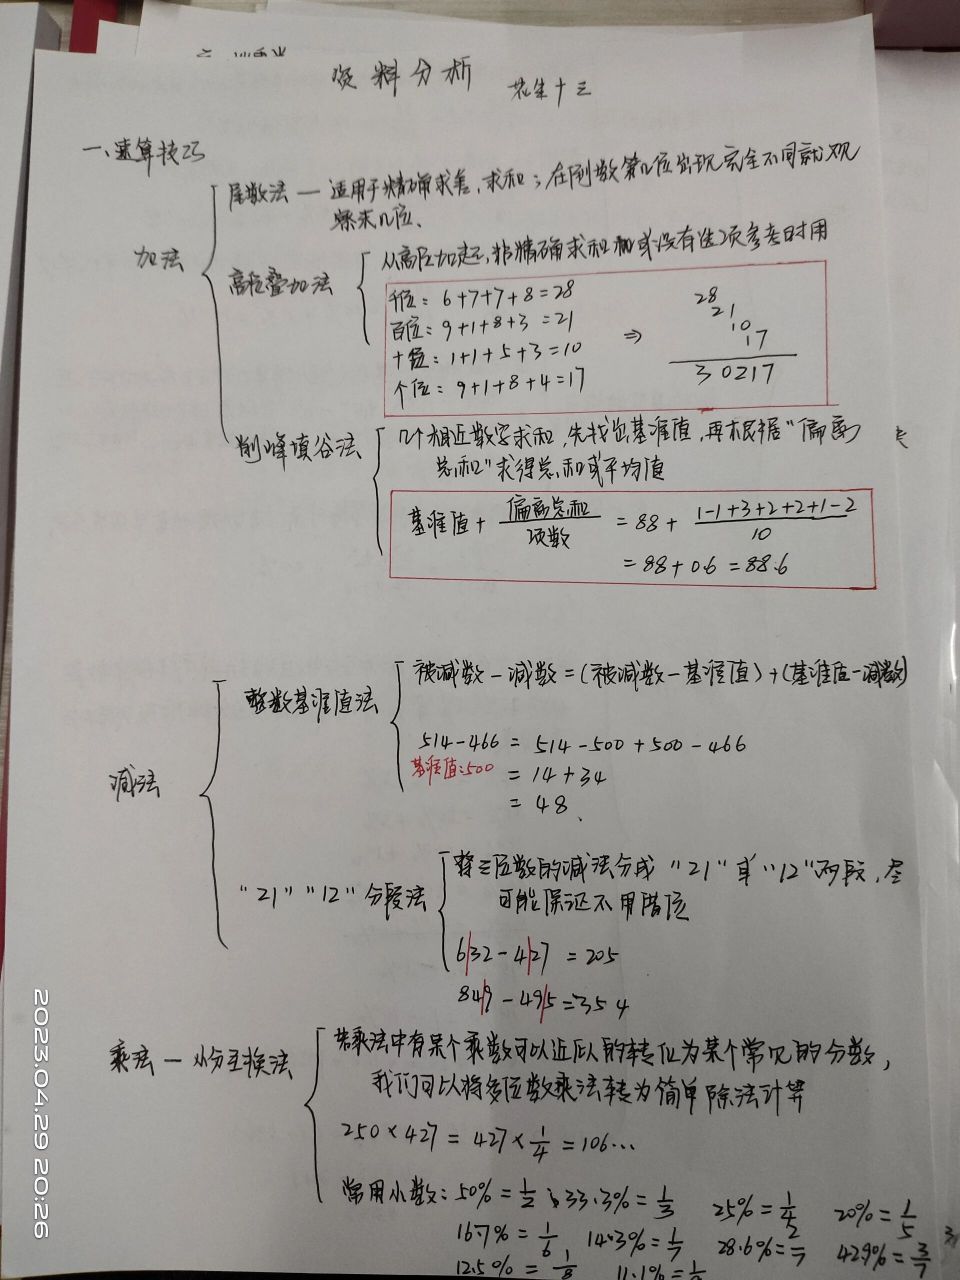 资料分析 花生十三
一、速算技巧
加法
尾数法 — 适用于精确求差、求和；在列数第几位出现完全不同就观
察末几位、
高位叠加法
从高位加起，非精确求和或没有选项参考时用
千位：6+7+7+8=28
百位：9+1+8+3=21
十位：1+1+5+3=10
个位：9+1+8+4=17
⇒
28
21
10
17
30217
削峰填谷法
几个相近数字求和，先找出基准值，再根据“偏离
总和”求得总和或平均值
基准值 + 偏离总和/项数 = 88 + 1-1+3+2+2+1-2/10
= 88+0.6 = 88.6
减法
整数基准值法
被减数-减数=(被减数-基准值)+(基准值-减数)
514-466 = 514-500+500-466
基准值:500
= 14+34
= 48、
“21”“12”分段法
将三位数的减法分成“21”或“12”两段，尽
可能保证不用借位
6|32-4|27 = 205
84|9-49|5=354
乘法 — 小分互换法
若乘法中有某个乘数可以近似的转化为某个常见的分数，
我们可以将多位数乘法转为简单除法计算
250×427 = 427×1/4 = 106…
常用小数：50%=1/2、33.3%=1/3 25%=1/4 20%=1/5
16.7%=1/6 14.3%=1/7 28.6%=2/7 42.9%=3/7
12.5% = 1/8 11.1%=1/9
2023.04.29 20:26